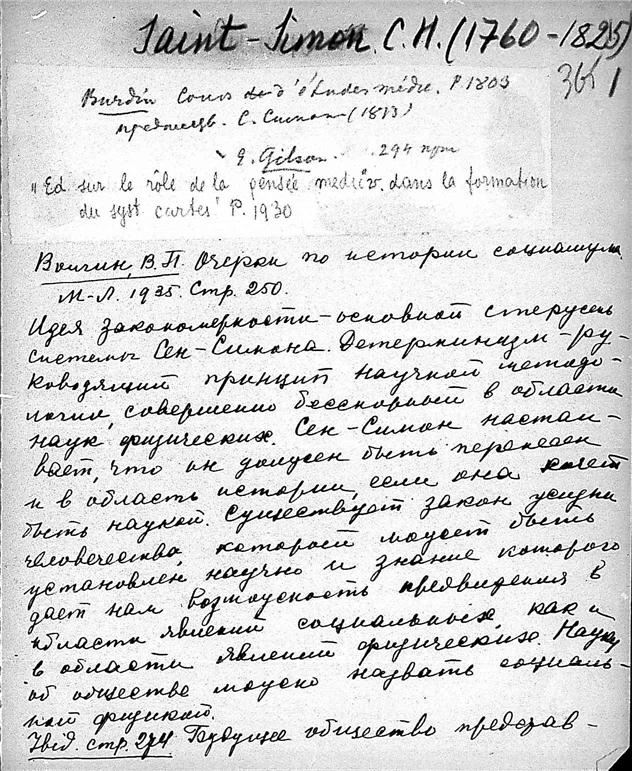 Saint-Simon C.H. (1760-1825)
Burdin Cours d'études médic. P 1803
предшеств. С. Симон (1813)
E. Gilson 294 прим
"Ed sur le rôle de la pensée mediév. dans la formation
du syst cartes" P. 1930
Волгин, В.П. Очерки по истории социализма
М-Л. 1935. Стр. 250.
Идея закономерности-основной стержень
системы Сен-Симона. Детерминизм-ру-
ководящий принцип научной методо-
логии, совершенно бесспорный в области
наук физических. Сен-Симон настаи-
вает, что он должен быть перенесен
и в область истории, если она хочет
быть наукой. Существует закон
человечества, которой может быть
установлен научно и знание которого
дает нам возможность предвидения в
области явлений социальных, как и
в области явлений физических. Науку
об обществе можно назвать социаль-
ной физикой.
Ibid. стр. 274 Будущее общество представ-